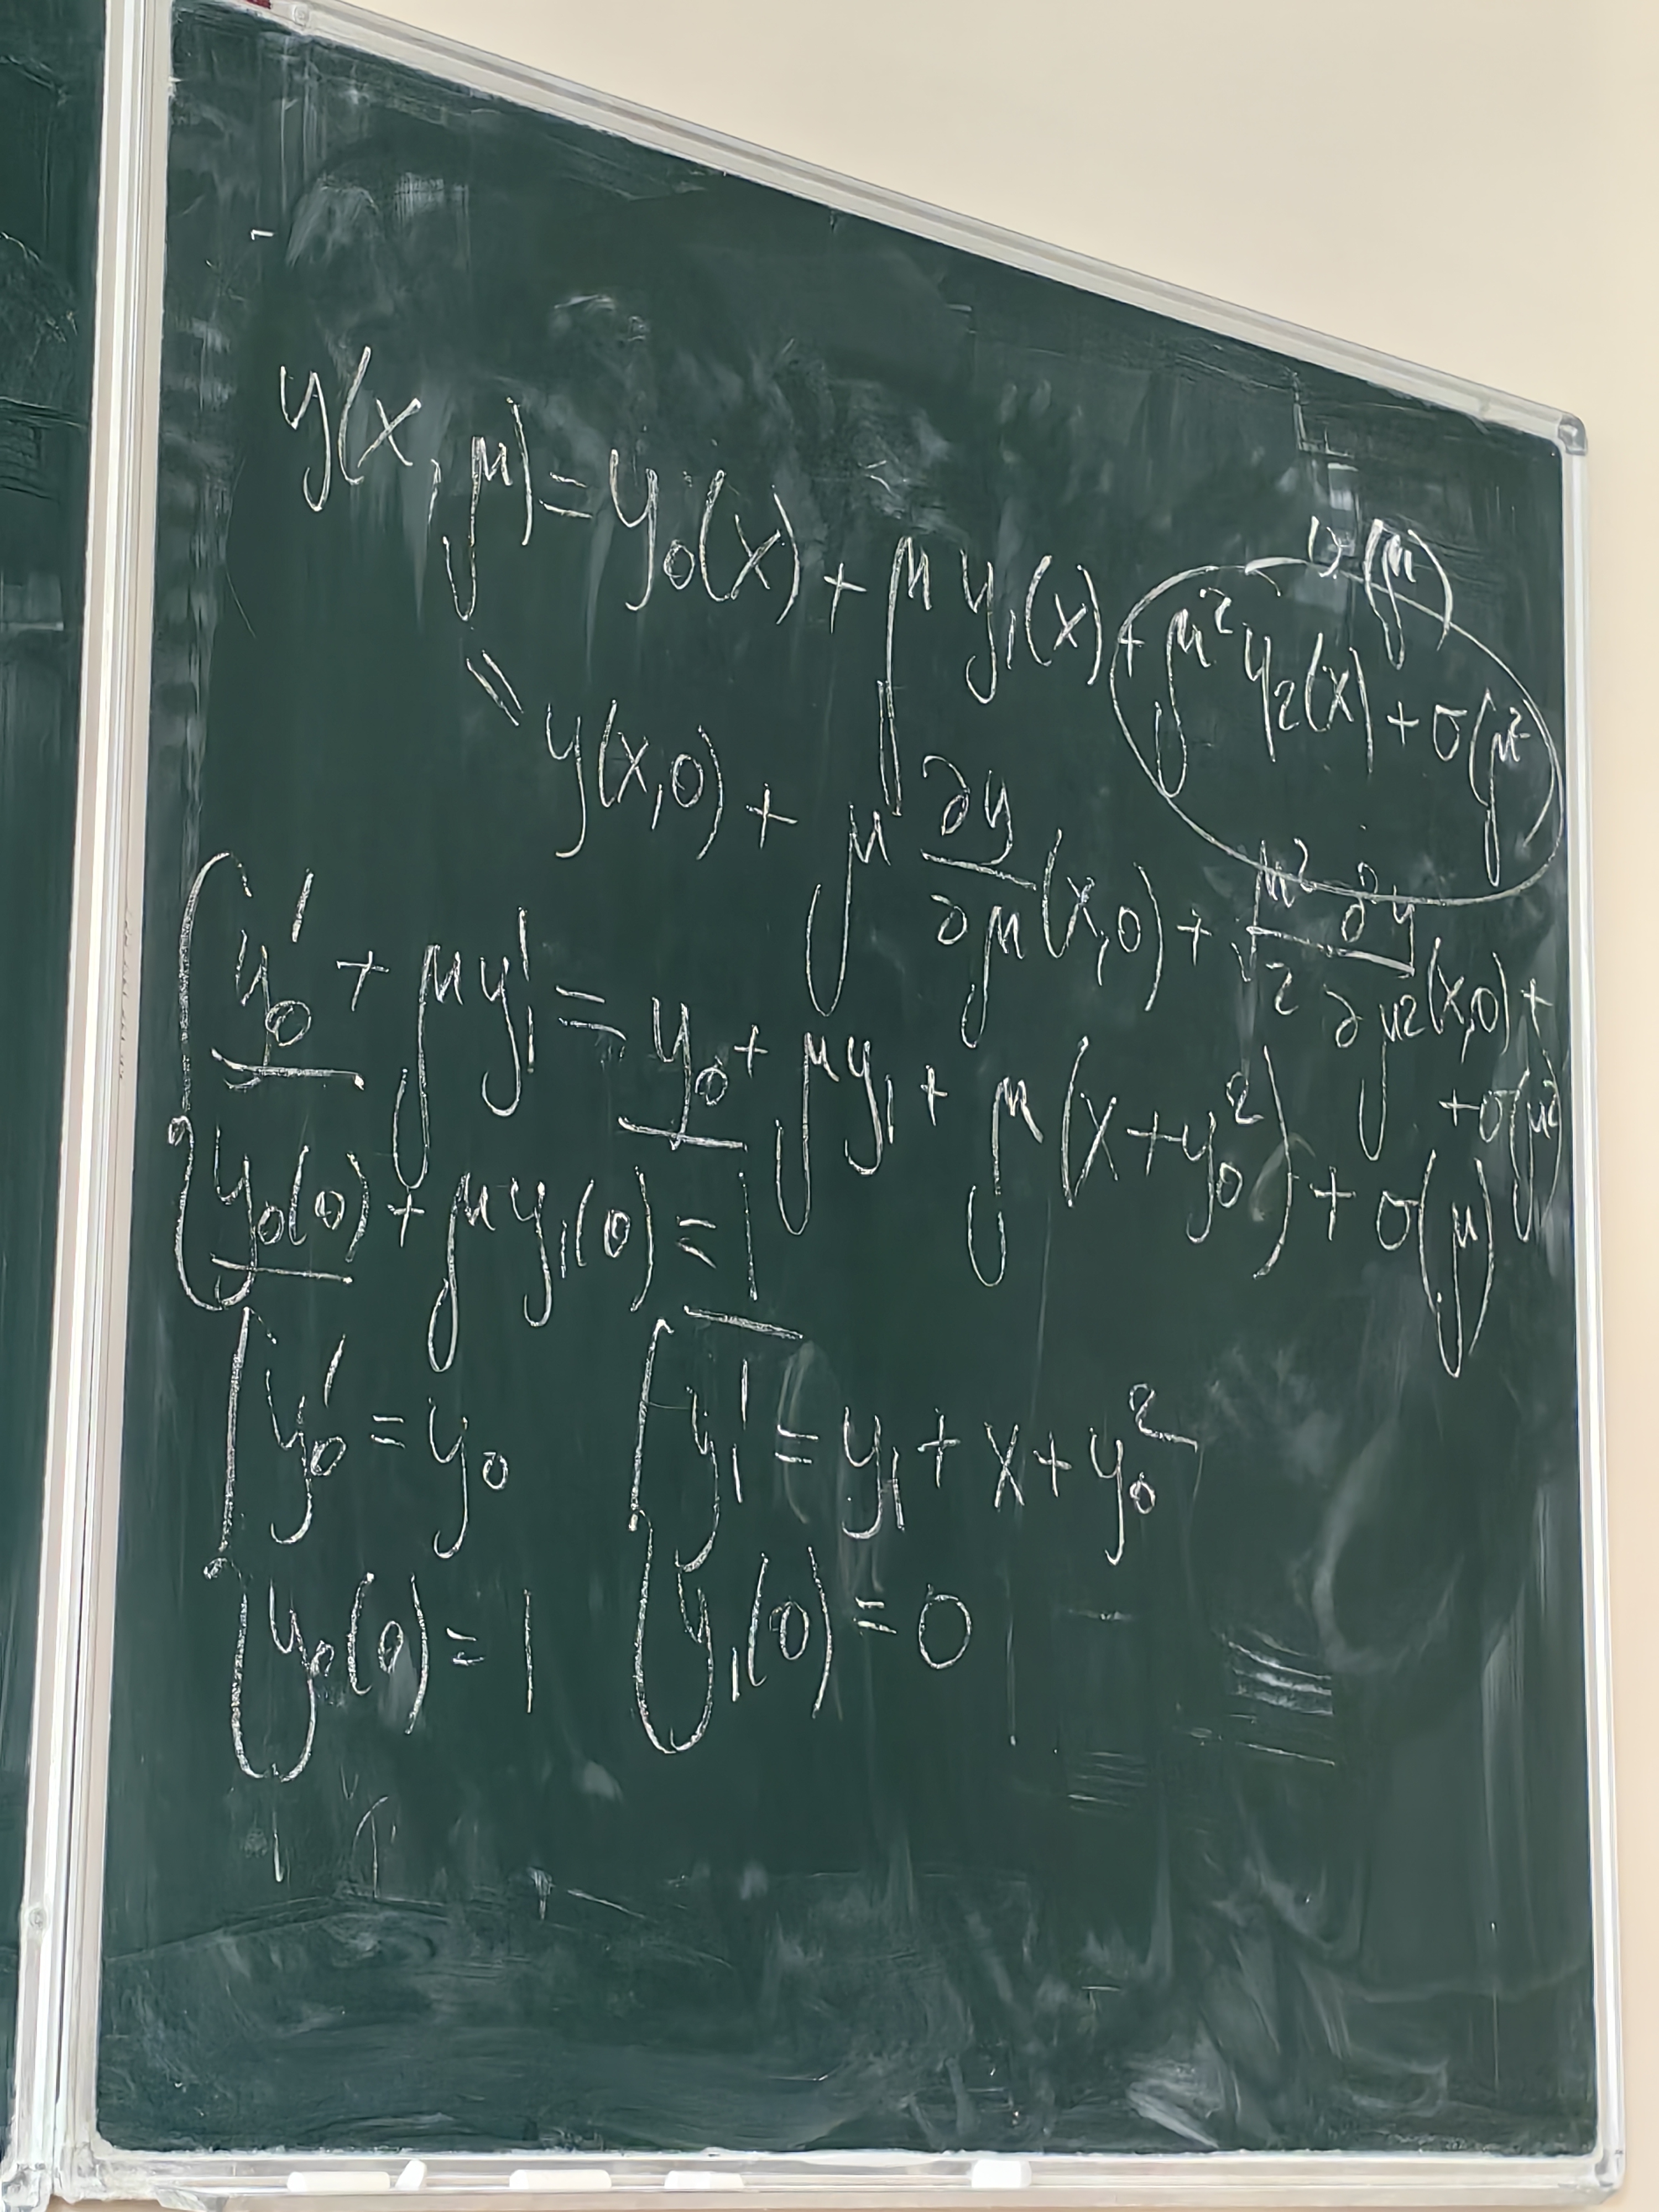 y(x, μ) = y₀(x) + μ y₁(x) + μ² y₂(x) + o(μ²
o(μ)
= y(x,0) + μ ∂y/∂μ (x,0) + μ²/2 ∂²y/∂μ² (x,0) +
+ o(μ²)
{ y₀' + μy₁' = y₀ + μy₁ + μ(x + y₀²) + o(μ)
y₀(0) + μy₁(0) = 1
{ y₀' = y₀ { y₁' = y₁ + x + y₀²
y₀(0) = 1 y₁(0) = 0